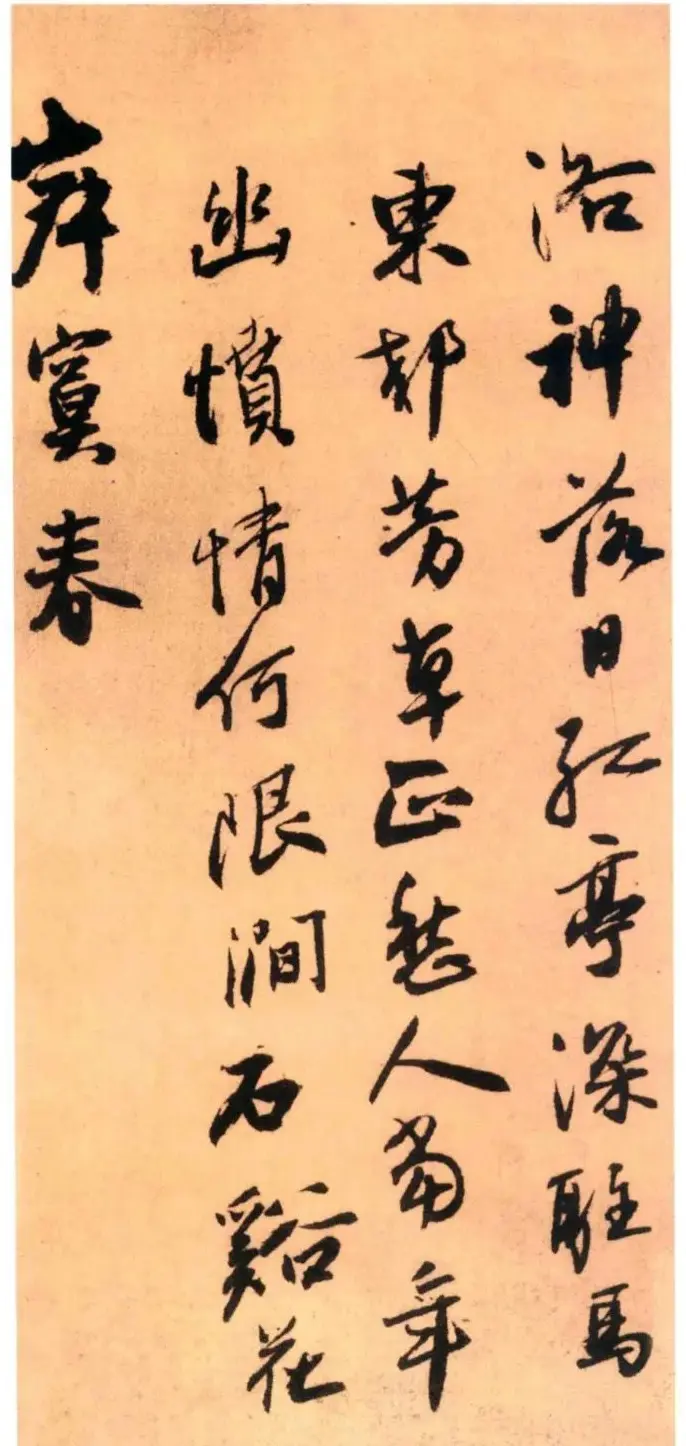 洛神落日紅亭深駐馬
東都芳草正愁人當年
幽憤情何限澗石谿花
春